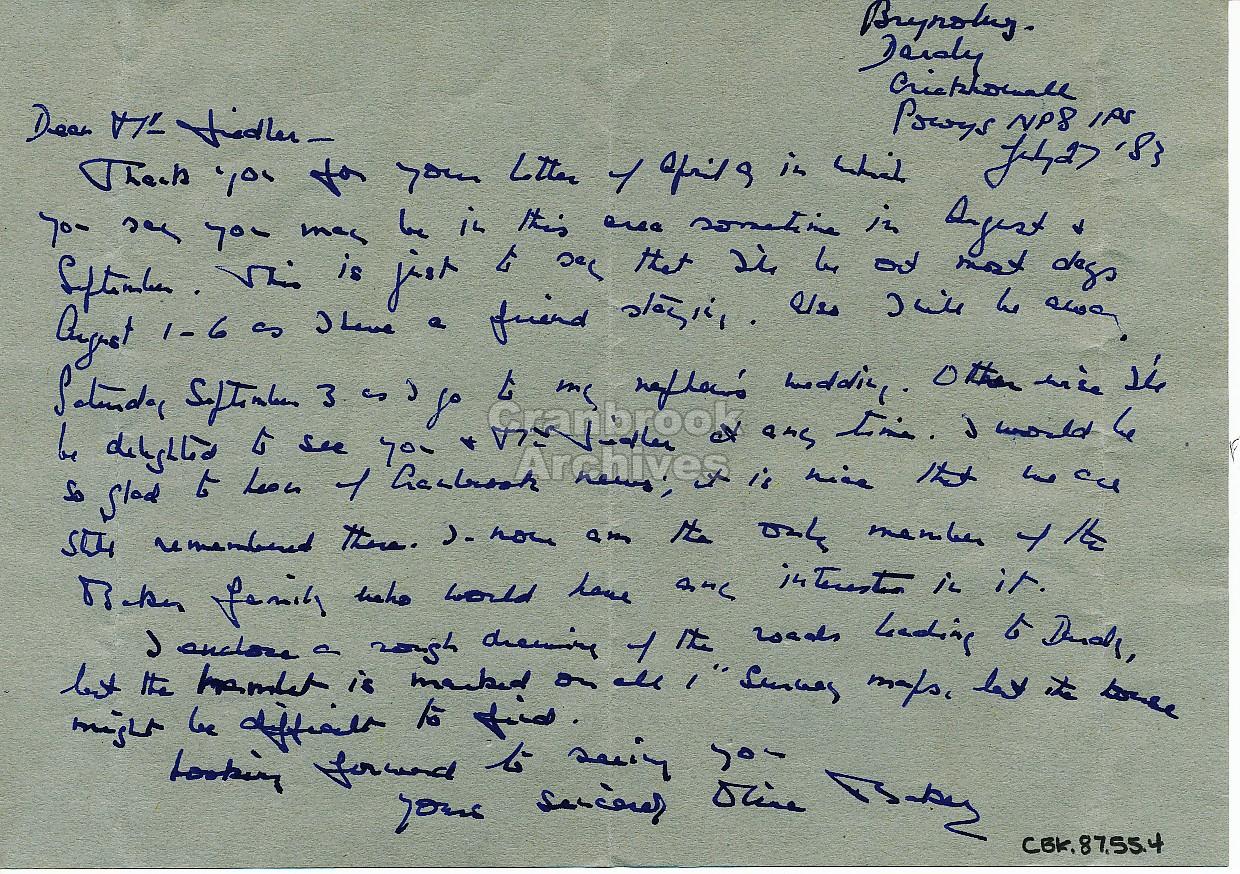 Dardy
Crickhowell
Powys NP8 1PS
July 27 '83
Dear Mr Fiedler –
Thank you for your letter of April 9 in which
you say you may be in this area sometime in August &
September. This is just to say that I'll be out most days
August 1 – 6 as I have a friend staying. Also I will be away
Saturday September 3 as I go to my nephew's wedding. Otherwise I'll
be delighted to see you & Mrs Fiedler at any time. I would be
so glad to hear of Cranbrook news; it is nice that we are
still remembered there. I now am the only member of the
Baker family who would have any interest in it.
I enclose a rough drawing of the roads leading to Dardy,
but the hamlet is marked on all 1" Survey maps, but the house
might be difficult to find.
Looking forward to seeing you
yours sincerely Olive Baker
Cranbrook
Archives
CBK.87.55.4